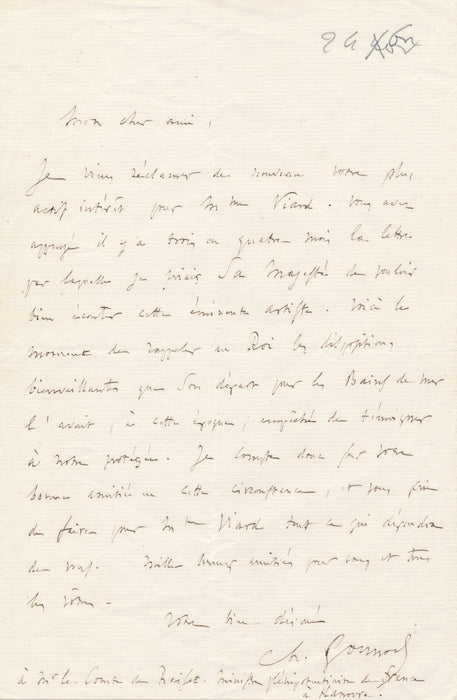 24
Mon cher ami,
Je viens réclamer de nouveau votre plus
actif intérêt pour Mme Viard. Vous avez
appuyé il y a trois ou quatre mois la lettre
par laquelle je priais Sa Majesté de vouloir
bien écouter cette éminente artiste. Voici le
moment de rappeler au Roi les dispositions
bienveillantes que son départ pour les Bains de mer
l'avait, à cette époque, empêché de témoigner
à notre protégée. Je compte donc sur votre
bonne amitié en cette circonstance, et vous prie
de faire pour Mme Viard tout ce qui dépendra
de vous. Mille bonnes amitiés pour vous et tous
les vôtres.
Votre bien dévoué
Ch. Gounod
à Mr le Comte de Reiset. Ministre plénipotentiaire de France
à Hanovre.